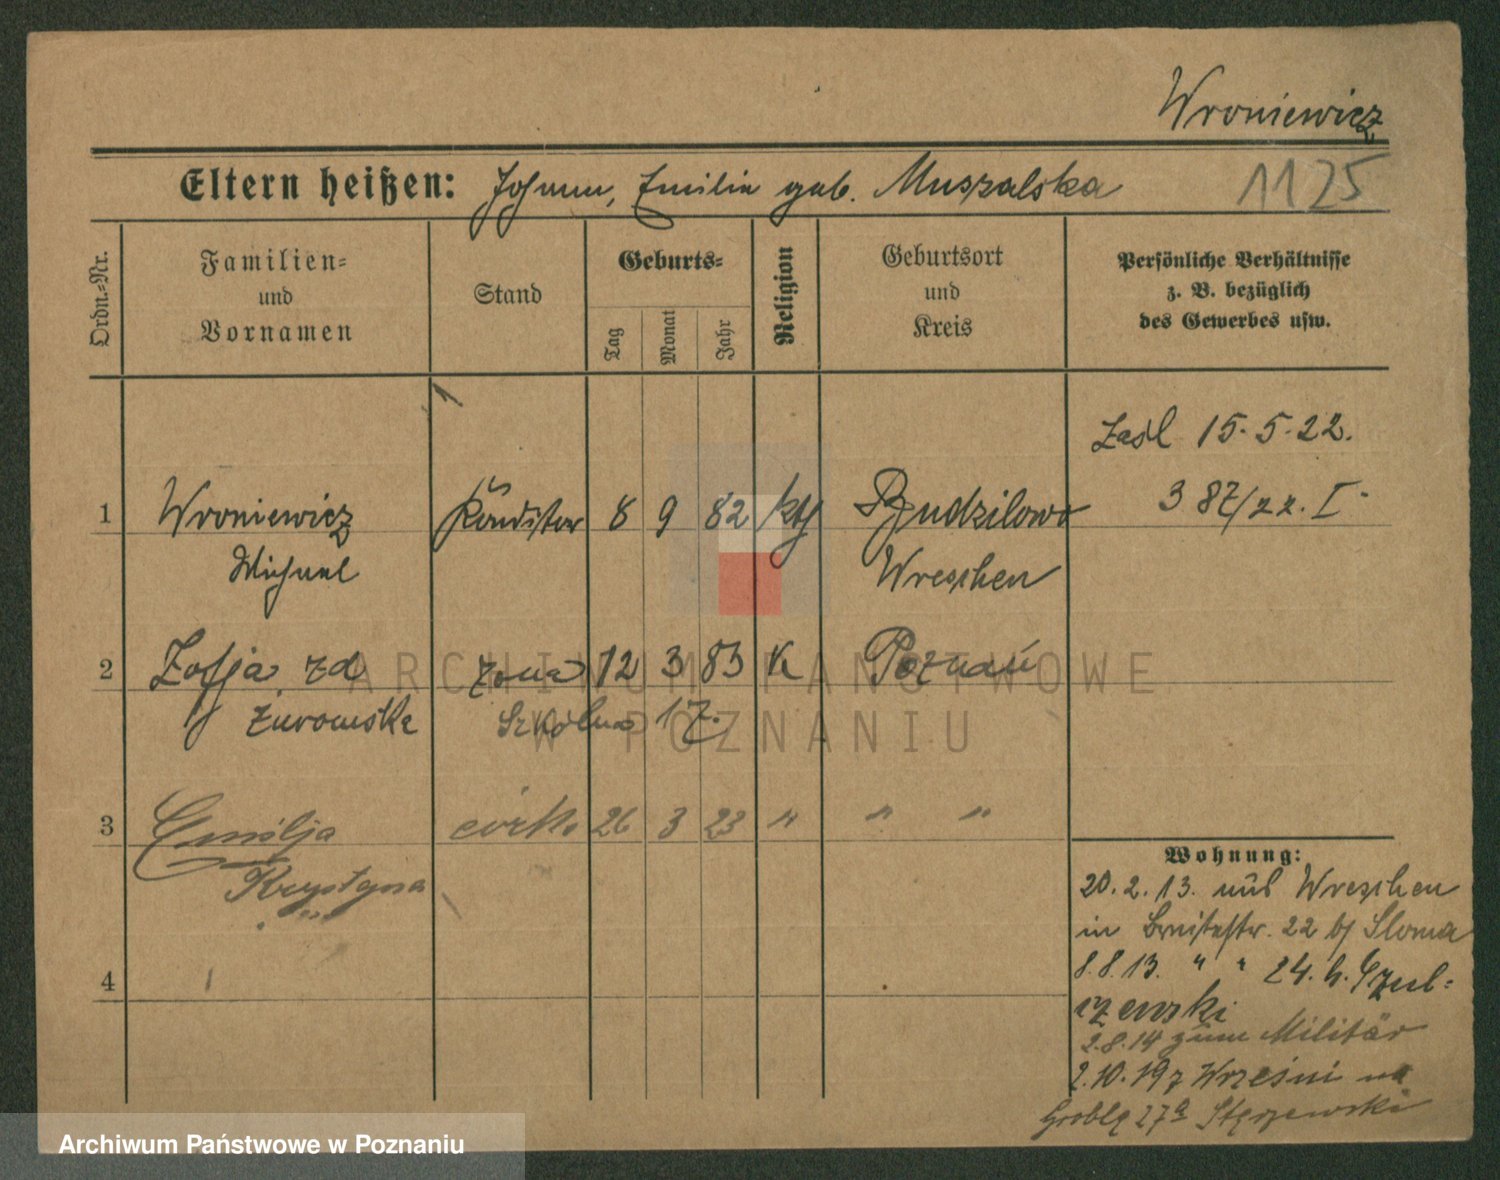 Wroniewicz
Eltern heißen: Johann, Emilia geb. Muszalska
1125
Ordn.-Nr.
Familien-
und
Vornamen
Stand
Geburts-
Tag
Monat
Jahr
Religion
Geburtsort
und
Kreis
Persönliche Verhältnisse
z. B. bezüglich
des Gewerbes usw.
Zasl 15.5.22.
387/22. I
1 Wroniewicz Konditor 8 9 82 kth Budzilowo
Michael Wreschen
2 Zofja zd żona 12 3 83 K Poznań
Żurowska Szkolna 17.
3 Emilja córka 26 3 23 " " "
Krystyna
4
Wohnung:
20.2.13. aus Wreschen
in Breitestr. 22 b/ Sloma
8.8.13. " " 24. b.
2.8.14 zum Militär
2.10.19 z Wrześni na
Groblę 27a Stęszewski
ARCHIWUM PAŃSTWOWE
W POZNANIU
Archiwum Państwowe w Poznaniu